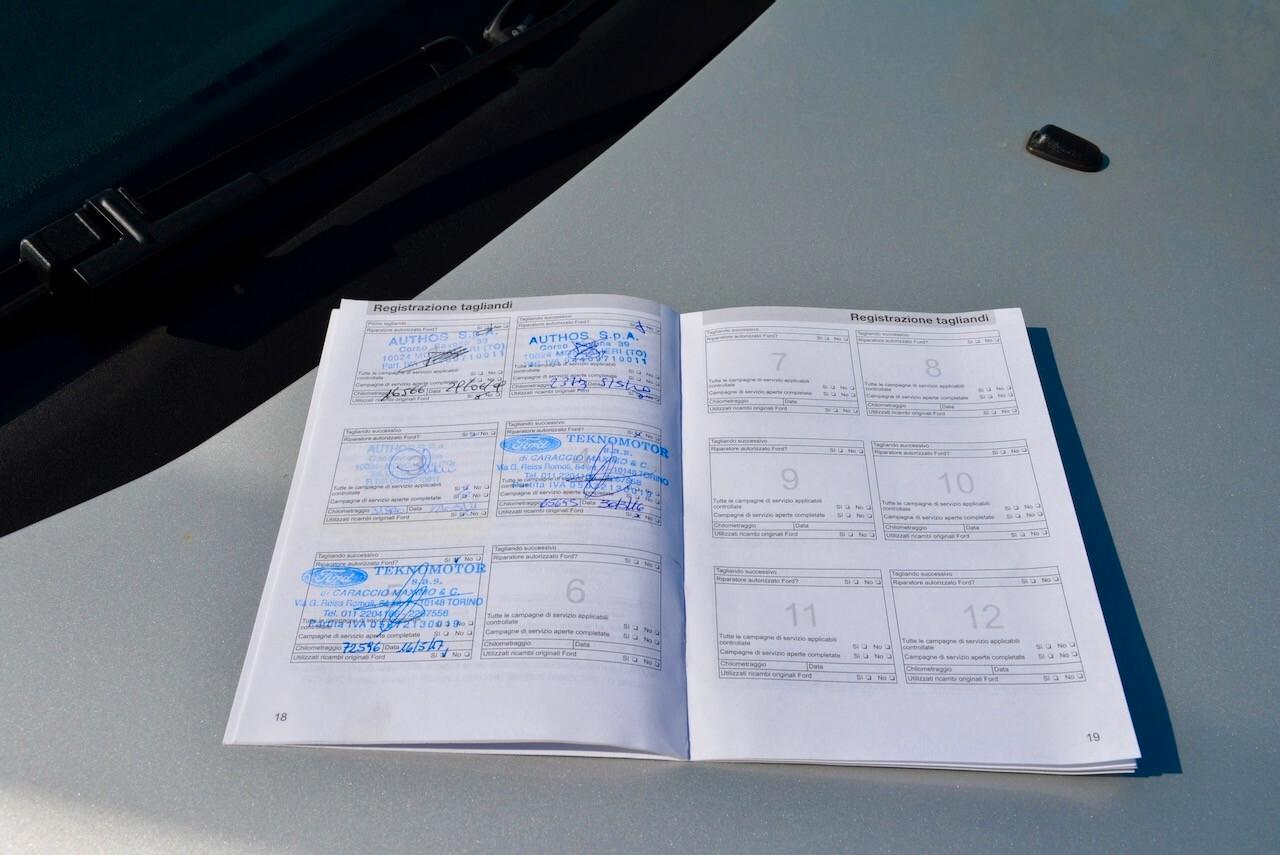 Registrazione tagliandi
Primo tagliando
Riparatore autorizzato Ford? Sì No
AUTHOS S.p.A.
Corso Savona 39
10024 (TO)
Part. IVA 10011
Tutte le campagne di servizio applicabili
controllate Sì No
Campagne di servizio aperte completate Sì No
Chilometraggio 16566 Data
Utilizzati ricambi originali Ford Sì No
Tagliando successivo
Riparatore autorizzato Ford? Sì No
AUTHOS S.p.A.
Corso Savona 39
10024 MONCALIERI (TO)
Part. IVA 09710011
Tutte le campagne di servizio applicabili
controllate Sì No
Campagne di servizio aperte completate Sì No
Chilometraggio Data
Utilizzati ricambi originali Ford Sì No
Tagliando successivo
Riparatore autorizzato Ford? Sì No
AUTHOS S.p.A.
3
Tutte le campagne di servizio applicabili
controllate Sì No
Campagne di servizio aperte completate Sì No
Chilometraggio Data
Utilizzati ricambi originali Ford Sì No
Tagliando successivo
Riparatore autorizzato Ford? Sì No
Ford TEKNOMOTOR
s.a.s.
di CARACCIO MAXIMO & C.
Via G. Reiss Romoli, 10148 TORINO
Tel. 011
Partita IVA 05872130019
Campagne di servizio aperte completate
Chilometraggio Data
Utilizzati ricambi originali Ford Sì No
Tagliando successivo
Riparatore autorizzato Ford? Sì No
Ford TEKNOMOTOR
s.a.s.
di CARACCIO MAXIMO & C.
Via G. Reiss Romoli, 10148 TORINO
Tel. 011 2267558
Partita IVA 05872130019
Campagne di servizio aperte completate Sì No
Chilometraggio 72596 Data 16/5/17
Utilizzati ricambi originali Ford Sì No
Tagliando successivo
Riparatore autorizzato Ford? Sì No
6
Tutte le campagne di servizio applicabili
controllate Sì No
Campagne di servizio aperte completate Sì No
Chilometraggio Data
Utilizzati ricambi originali Ford Sì No
18
Registrazione tagliandi
Tagliando successivo
Riparatore autorizzato Ford? Sì No
7
Tutte le campagne di servizio applicabili
controllate Sì No
Campagne di servizio aperte completate Sì No
Chilometraggio Data
Utilizzati ricambi originali Ford Sì No
Tagliando successivo
Riparatore autorizzato Ford? Sì No
8
Tutte le campagne di servizio applicabili
controllate Sì No
Campagne di servizio aperte completate Sì No
Chilometraggio Data
Utilizzati ricambi originali Ford Sì No
Tagliando successivo
Riparatore autorizzato Ford? Sì No
9
Tutte le campagne di servizio applicabili
controllate Sì No
Campagne di servizio aperte completate Sì No
Chilometraggio Data
Utilizzati ricambi originali Ford Sì No
Tagliando successivo
Riparatore autorizzato Ford? Sì No
10
Tutte le campagne di servizio applicabili
controllate Sì No
Campagne di servizio aperte completate Sì No
Chilometraggio Data
Utilizzati ricambi originali Ford Sì No
Tagliando successivo
Riparatore autorizzato Ford? Sì No
11
Tutte le campagne di servizio applicabili
controllate Sì No
Campagne di servizio aperte completate Sì No
Chilometraggio Data
Utilizzati ricambi originali Ford Sì No
Tagliando successivo
Riparatore autorizzato Ford? Sì No
12
Tutte le campagne di servizio applicabili
controllate Sì No
Campagne di servizio aperte completate Sì No
Chilometraggio Data
Utilizzati ricambi originali Ford Sì No
19